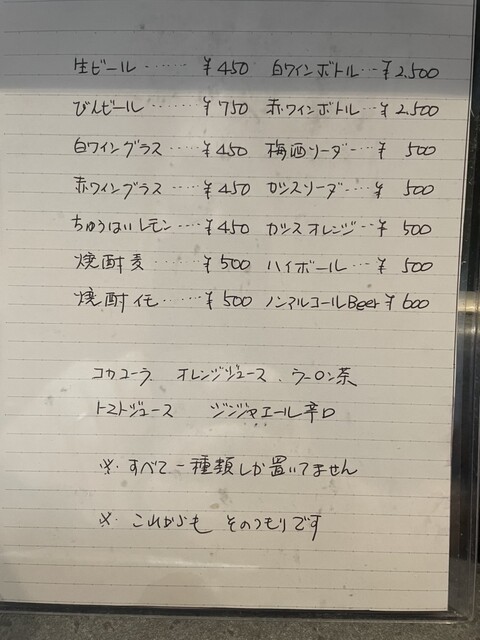 生ビール ‥‥‥ ¥450 白ワインボトル‥‥¥2,500
びんビール ‥‥‥ ¥750 赤ワインボトル‥‥¥2,500
白ワイングラス ‥‥‥¥450 梅酒ソーダー‥‥¥ 500
赤ワイングラス ‥‥‥¥450 カシスソーダー‥‥¥ 500
ちゅうはいレモン‥‥‥¥450 カシスオレンジ‥‥¥ 500
焼酎麦 ‥‥‥¥500 ハイボール‥‥¥ 500
焼酎イモ ‥‥‥¥500 ノンアルコールBeer¥600
コカコーラ、 オレンジジュース、ウーロン茶
トマトジュース ジンジャエール辛口
※. すべて一種類しか置いてません
※. これからも そのつもりです